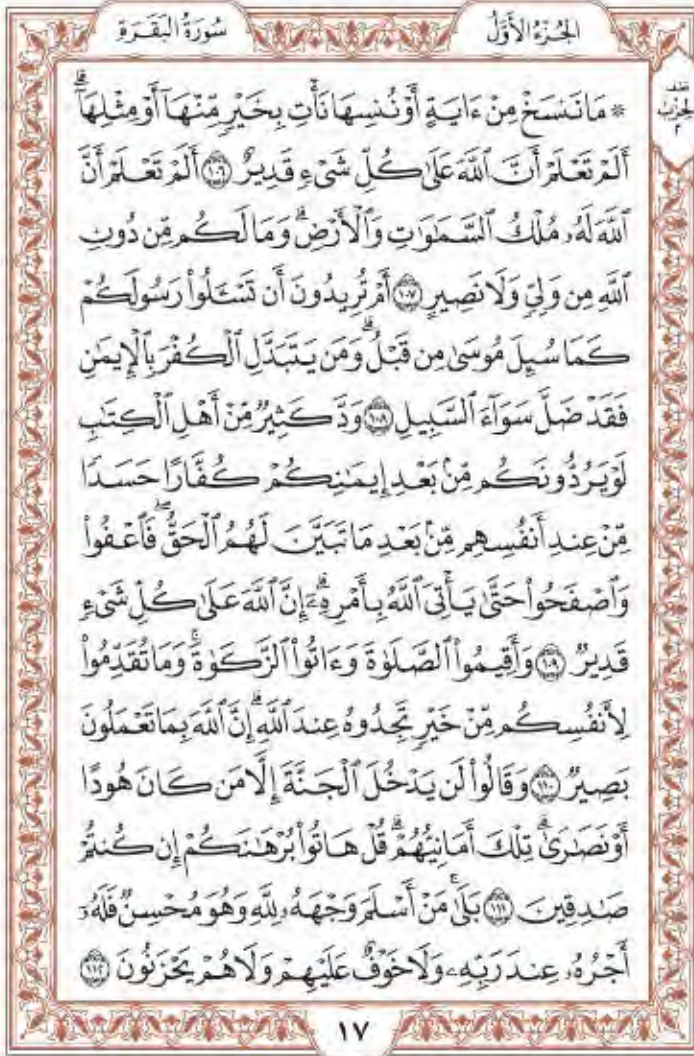 سُورَةُ البَقَرَةِ
الجُزْءُ الأَوَّلُ
نصف
الحزب
٢
۞ مَا نَنسَخْ مِنْ ءَايَةٍ أَوْ نُنسِهَا نَأْتِ بِخَيْرٍ مِّنْهَآ أَوْ مِثْلِهَآۗ
أَلَمْ تَعْلَمْ أَنَّ ٱللَّهَ عَلَىٰ كُلِّ شَىْءٍ قَدِيرٌ ۝١٠٦ أَلَمْ تَعْلَمْ أَنَّ
ٱللَّهَ لَهُۥ مُلْكُ ٱلسَّمَـٰوَٰتِ وَٱلْأَرْضِۗ وَمَا لَكُم مِّن دُونِ
ٱللَّهِ مِن وَلِىٍّ وَلَا نَصِيرٍ ۝١٠٧ أَمْ تُرِيدُونَ أَن تَسْـَٔلُوا۟ رَسُولَكُمْ
كَمَا سُئِلَ مُوسَىٰ مِن قَبْلُۗ وَمَن يَتَبَدَّلِ ٱلْكُفْرَ بِٱلْإِيمَـٰنِ
فَقَدْ ضَلَّ سَوَآءَ ٱلسَّبِيلِ ۝١٠٨ وَدَّ كَثِيرٌ مِّنْ أَهْلِ ٱلْكِتَـٰبِ
لَوْ يَرُدُّونَكُم مِّنۢ بَعْدِ إِيمَـٰنِكُمْ كُفَّارًا حَسَدًا
مِّنْ عِندِ أَنفُسِهِم مِّنۢ بَعْدِ مَا تَبَيَّنَ لَهُمُ ٱلْحَقُّۖ فَٱعْفُوا۟
وَٱصْفَحُوا۟ حَتَّىٰ يَأْتِىَ ٱللَّهُ بِأَمْرِهِۦٓۗ إِنَّ ٱللَّهَ عَلَىٰ كُلِّ شَىْءٍ
قَدِيرٌ ۝١٠٩ وَأَقِيمُوا۟ ٱلصَّلَوٰةَ وَءَاتُوا۟ ٱلزَّكَوٰةَۚ وَمَا تُقَدِّمُوا۟
لِأَنفُسِكُم مِّنْ خَيْرٍ تَجِدُوهُ عِندَ ٱللَّهِۗ إِنَّ ٱللَّهَ بِمَا تَعْمَلُونَ
بَصِيرٌ ۝١١٠ وَقَالُوا۟ لَن يَدْخُلَ ٱلْجَنَّةَ إِلَّا مَن كَانَ هُودًا
أَوْ نَصَـٰرَىٰۗ تِلْكَ أَمَانِيُّهُمْۗ قُلْ هَاتُوا۟ بُرْهَـٰنَكُمْ إِن كُنتُمْ
صَـٰدِقِينَ ۝١١١ بَلَىٰۚ مَنْ أَسْلَمَ وَجْهَهُۥ لِلَّهِ وَهُوَ مُحْسِنٌ فَلَهُۥٓ
أَجْرُهُۥ عِندَ رَبِّهِۦ وَلَا خَوْفٌ عَلَيْهِمْ وَلَا هُمْ يَحْزَنُونَ ۝١١٢
١٧